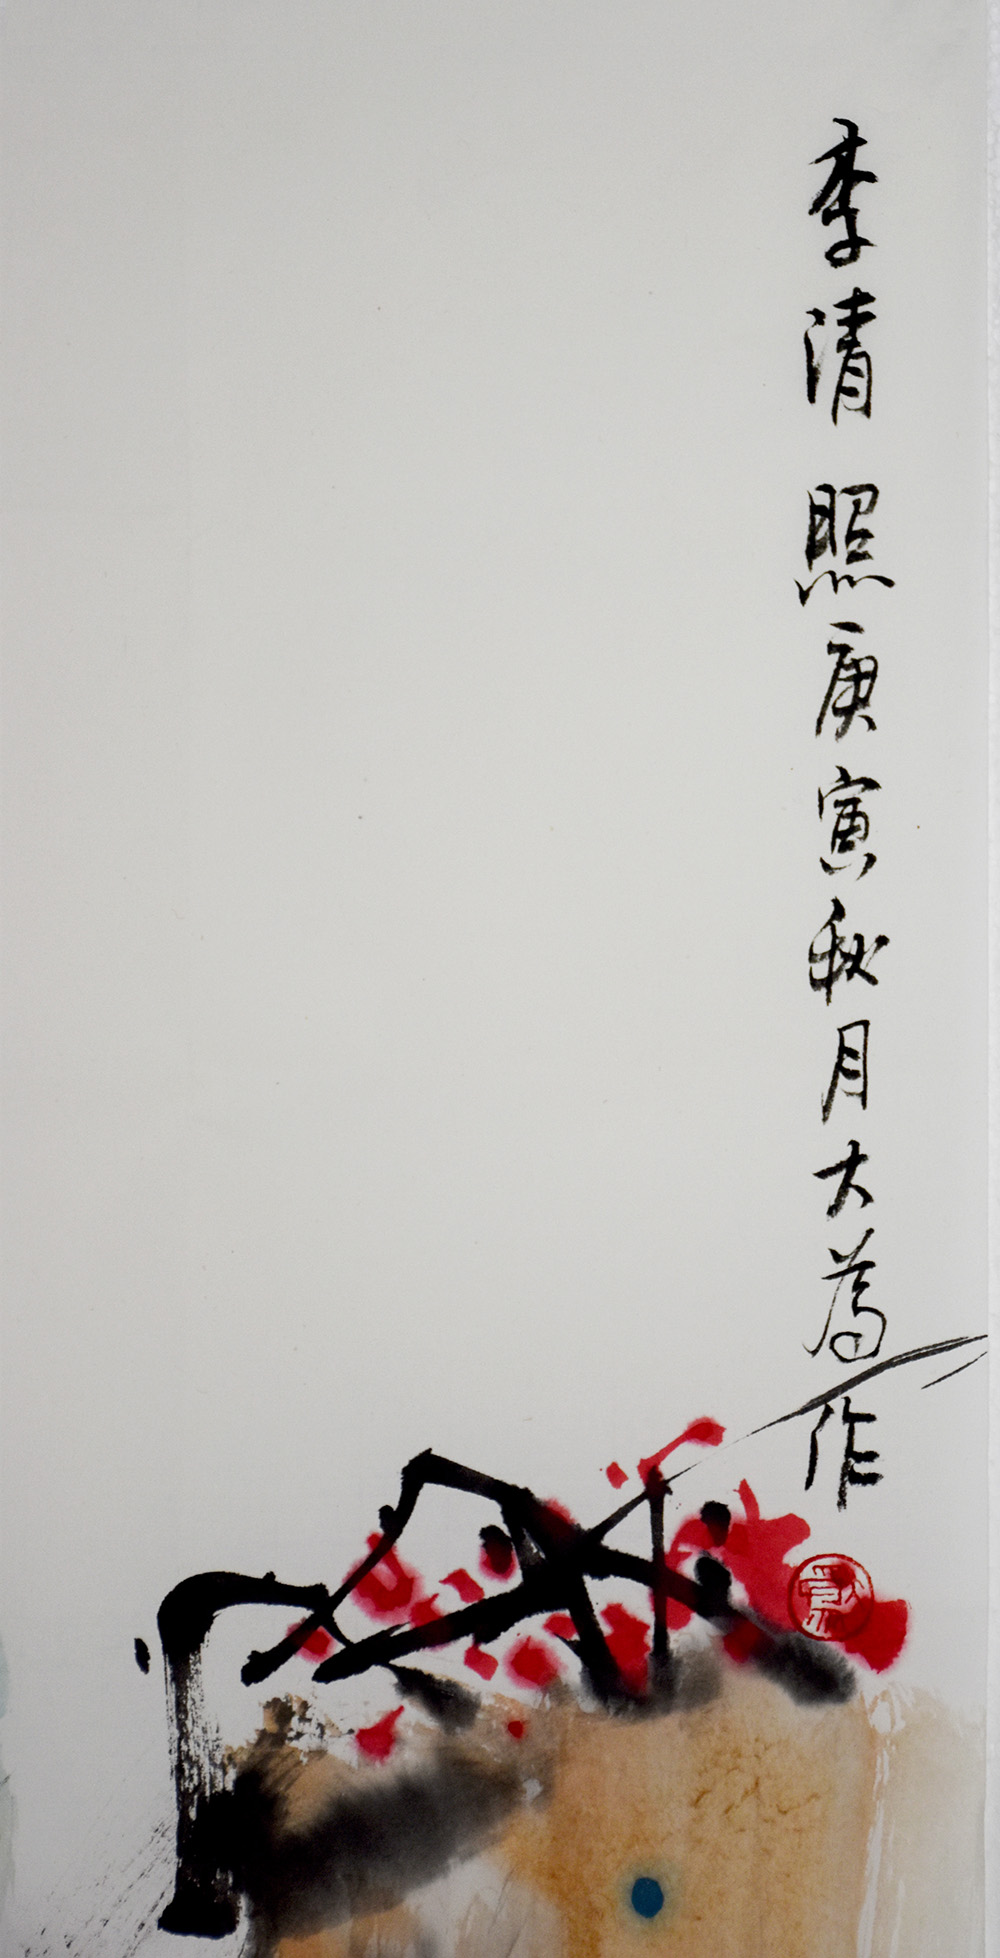 李清照庚寅秋月大為作